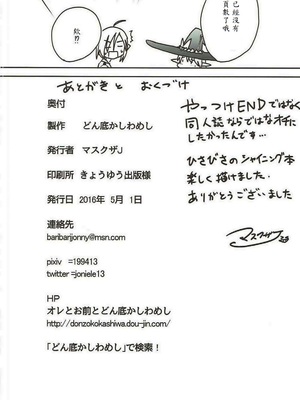 已經沒有
頁數了哦
欸!?
あとがきと おくづけ
奥付
製作 どん底かしわめし
発行者 マスクザJ
印刷所 きょうゆう出版様
発行日 2016年 5月 1日
連絡先
baribarijonny@msn.com
pixiv =199413
twitter =joniele13
HP
オレとお前とどん底かしわめし
http://donzokokashiwa.dou-jin.com/
「どん底かしわめし」で検索!
やっつけENDではなく
同人誌ならではなオチに
したかったんです…
ひさびさのシャイニング本
楽しく描けました.
ありがとうございました
マスクザJ